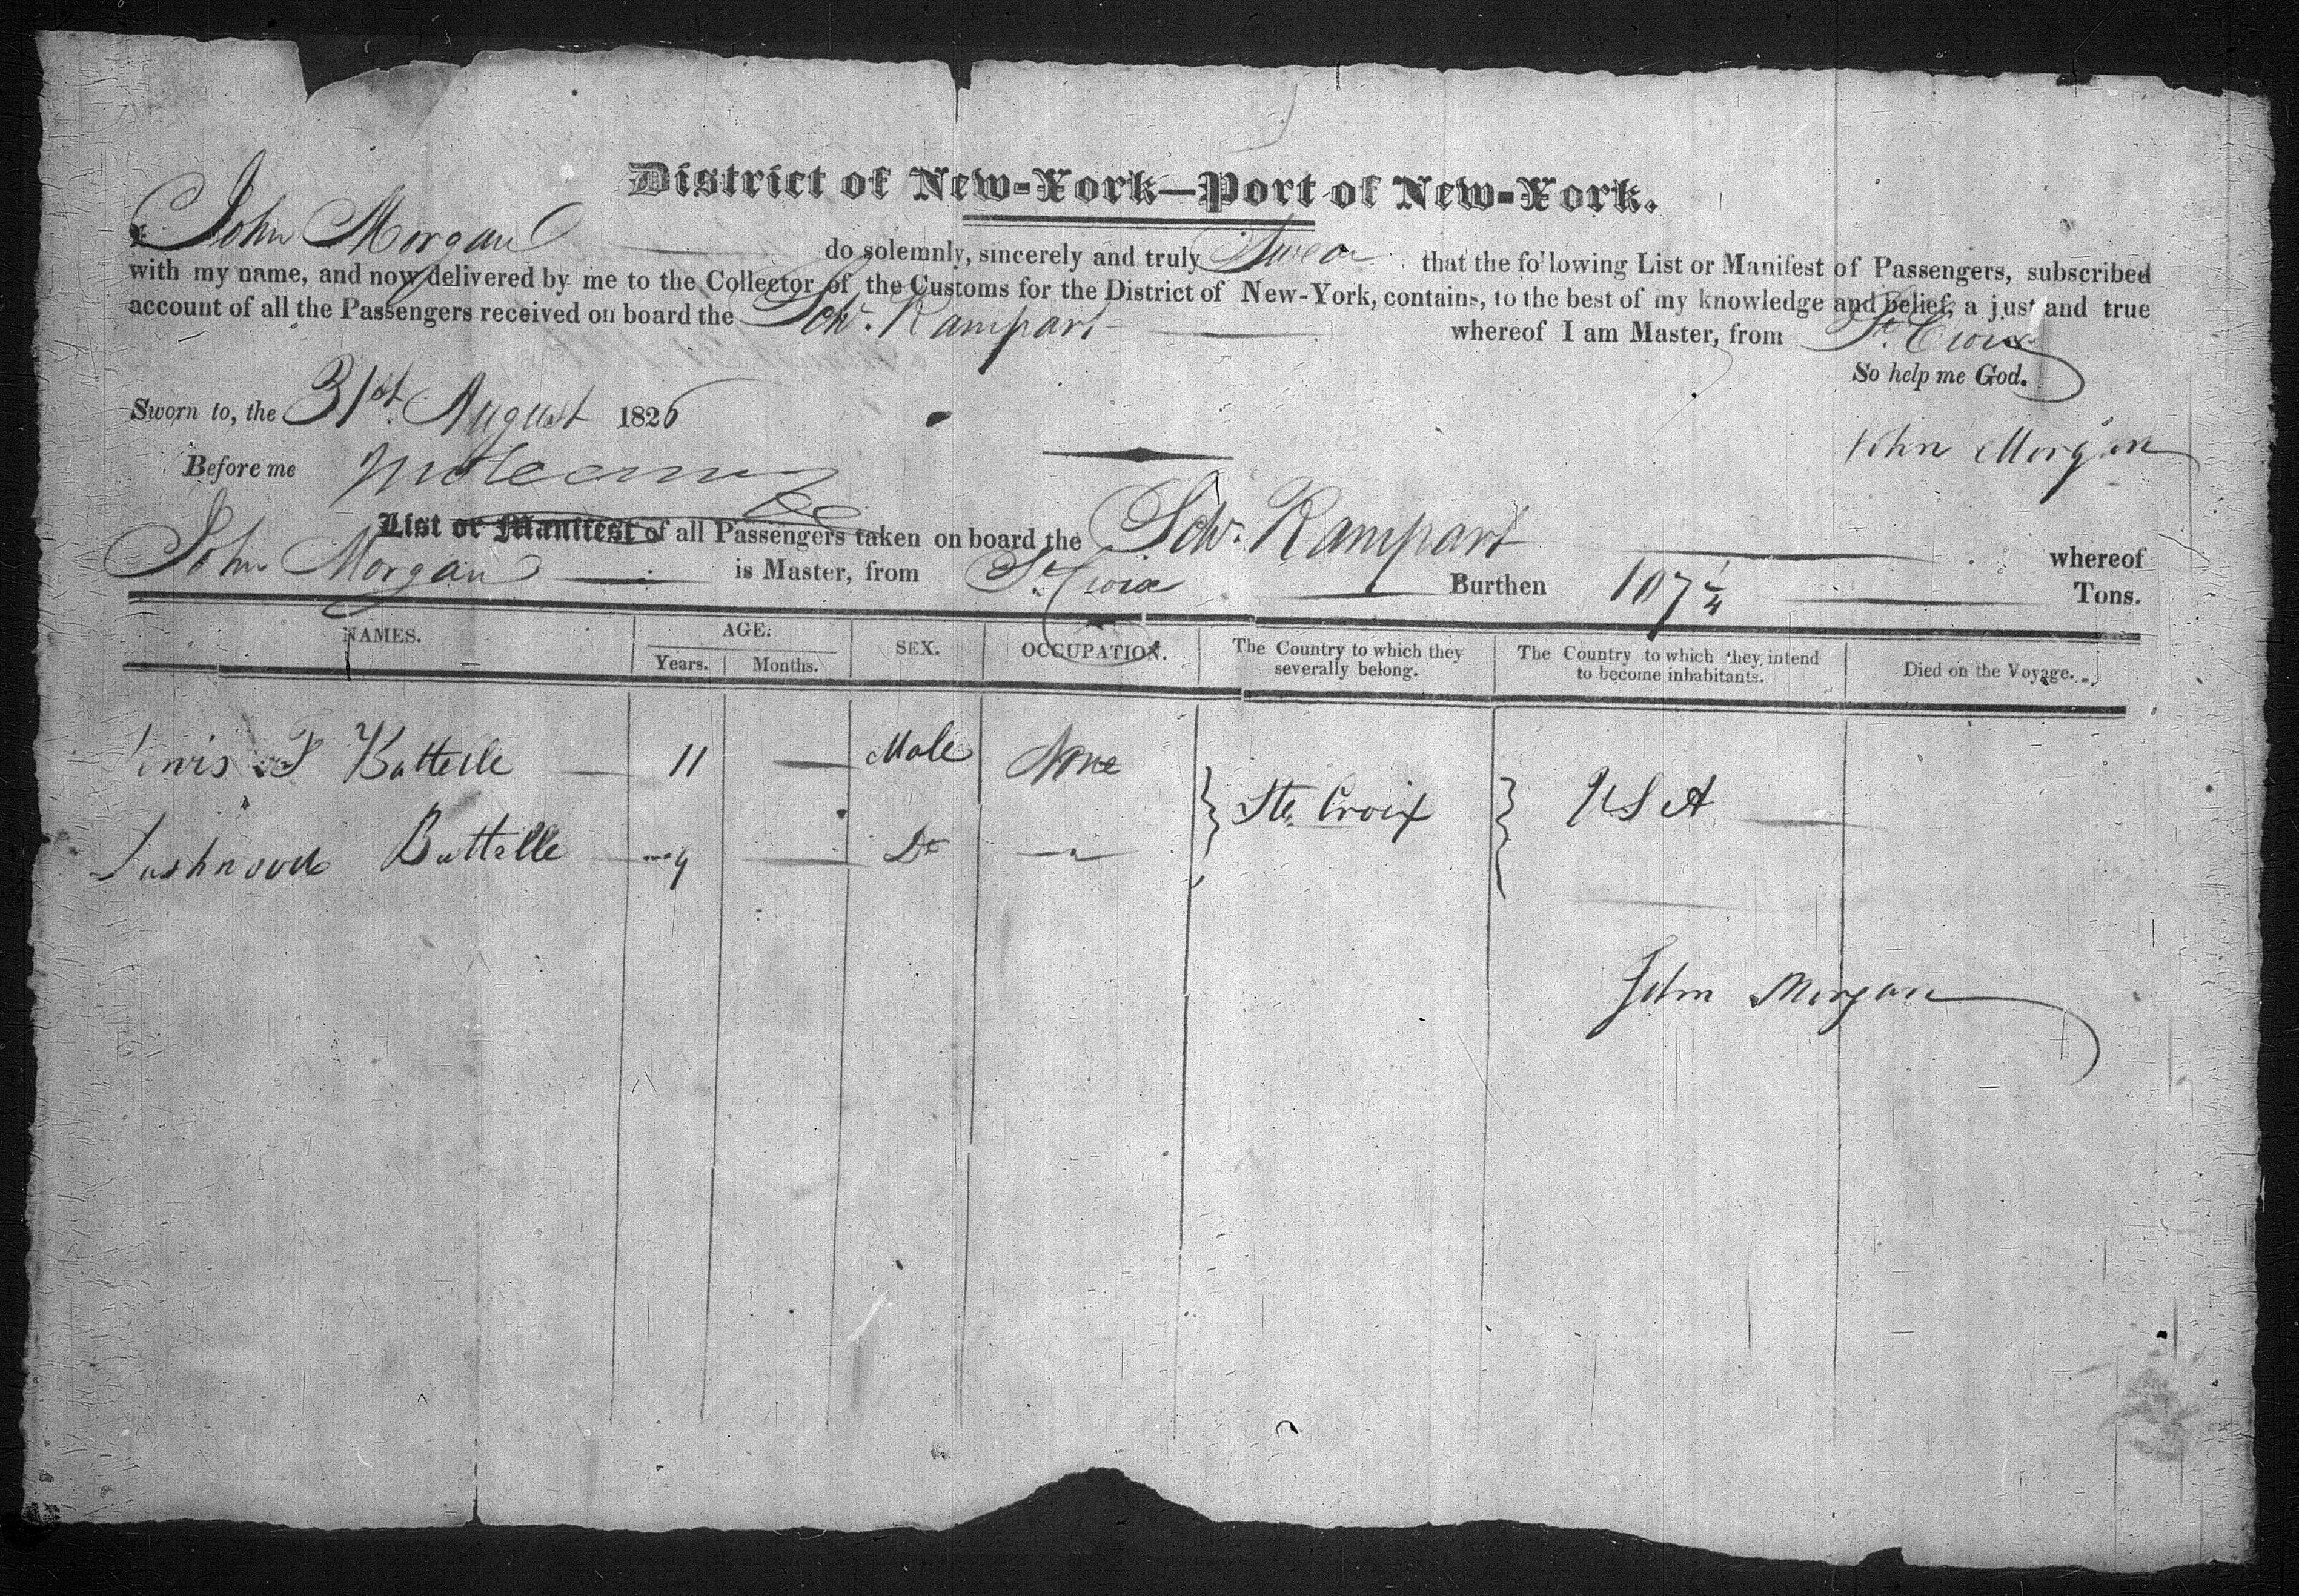 District of New-York—Port of New-York.
I John Morgan do solemnly, sincerely and truly Swear that the following List or Manifest of Passengers, subscribed
with my name, and now delivered by me to the Collector of the Customs for the District of New-York, contains, to the best of my knowledge and belief, a just and true
account of all the Passengers received on board the Schr. Rampart whereof I am Master, from St. Croix
So help me God.
Sworn to, the 31st August 1826
John Morgan
Before me
List or Manifest of all Passengers taken on board the Schr. Rampart whereof
John Morgan is Master, from St. Croix Burthen 107 1/4 Tons.
NAMES. AGE. SEX. OCCUPATION. The Country to which they severally belong. The Country to which they intend to become inhabitants. Died on the Voyage.
Years. Months.
Lewis F Battelle 11 — Male None
} Ste. Croix } U S A
Battelle 9 — Do —
John Morgan